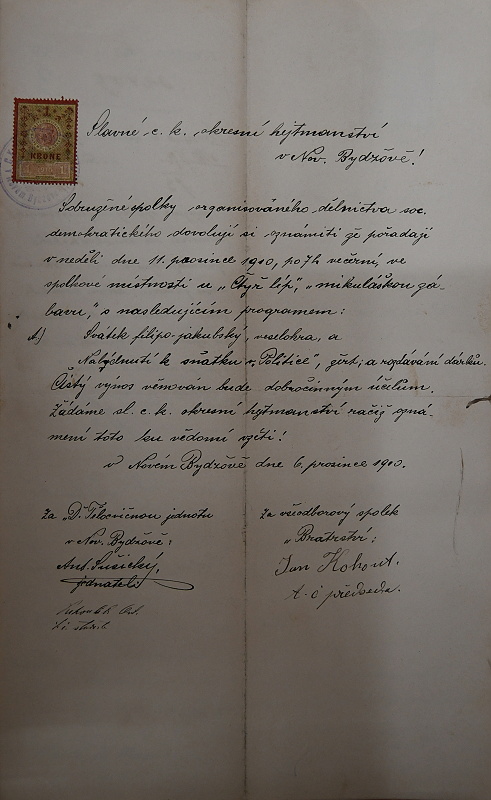 1
KRONE
1
Slavné c. k. okresní hejtmanství
v Nov. Bydžově!
Sdružené spolky organisováného dělnictva soc.
demokratického dovolují si oznámiti že pořádají
v neděli dne 11. prosince 1910, po 7 h večerní, ve
spolkové místnosti u „Čtyř lip", „mikulášskou zá-
bavu", s následujícím programem:
A.) Svátek filipo-jakubský, veselohra, a
Nabídnutí k sňatku v „Politice", žert; a rozdávání dárků.
Čistý výnos věnován bude dobročinným účelům.
Žádáme sl. c. k. okresní hejtmanství račiž ozná-
mení toto ku vědomí vzíti!
V Novém Bydžově dne 6. prosince 1910.
Za „D. Tělocvičnou jednotu
v Nov. Bydžově:
Ant. Sušický,
jednatel
Za všeodborový spolek
„Bratrství:
Jan Kohout.
t. č předseda.